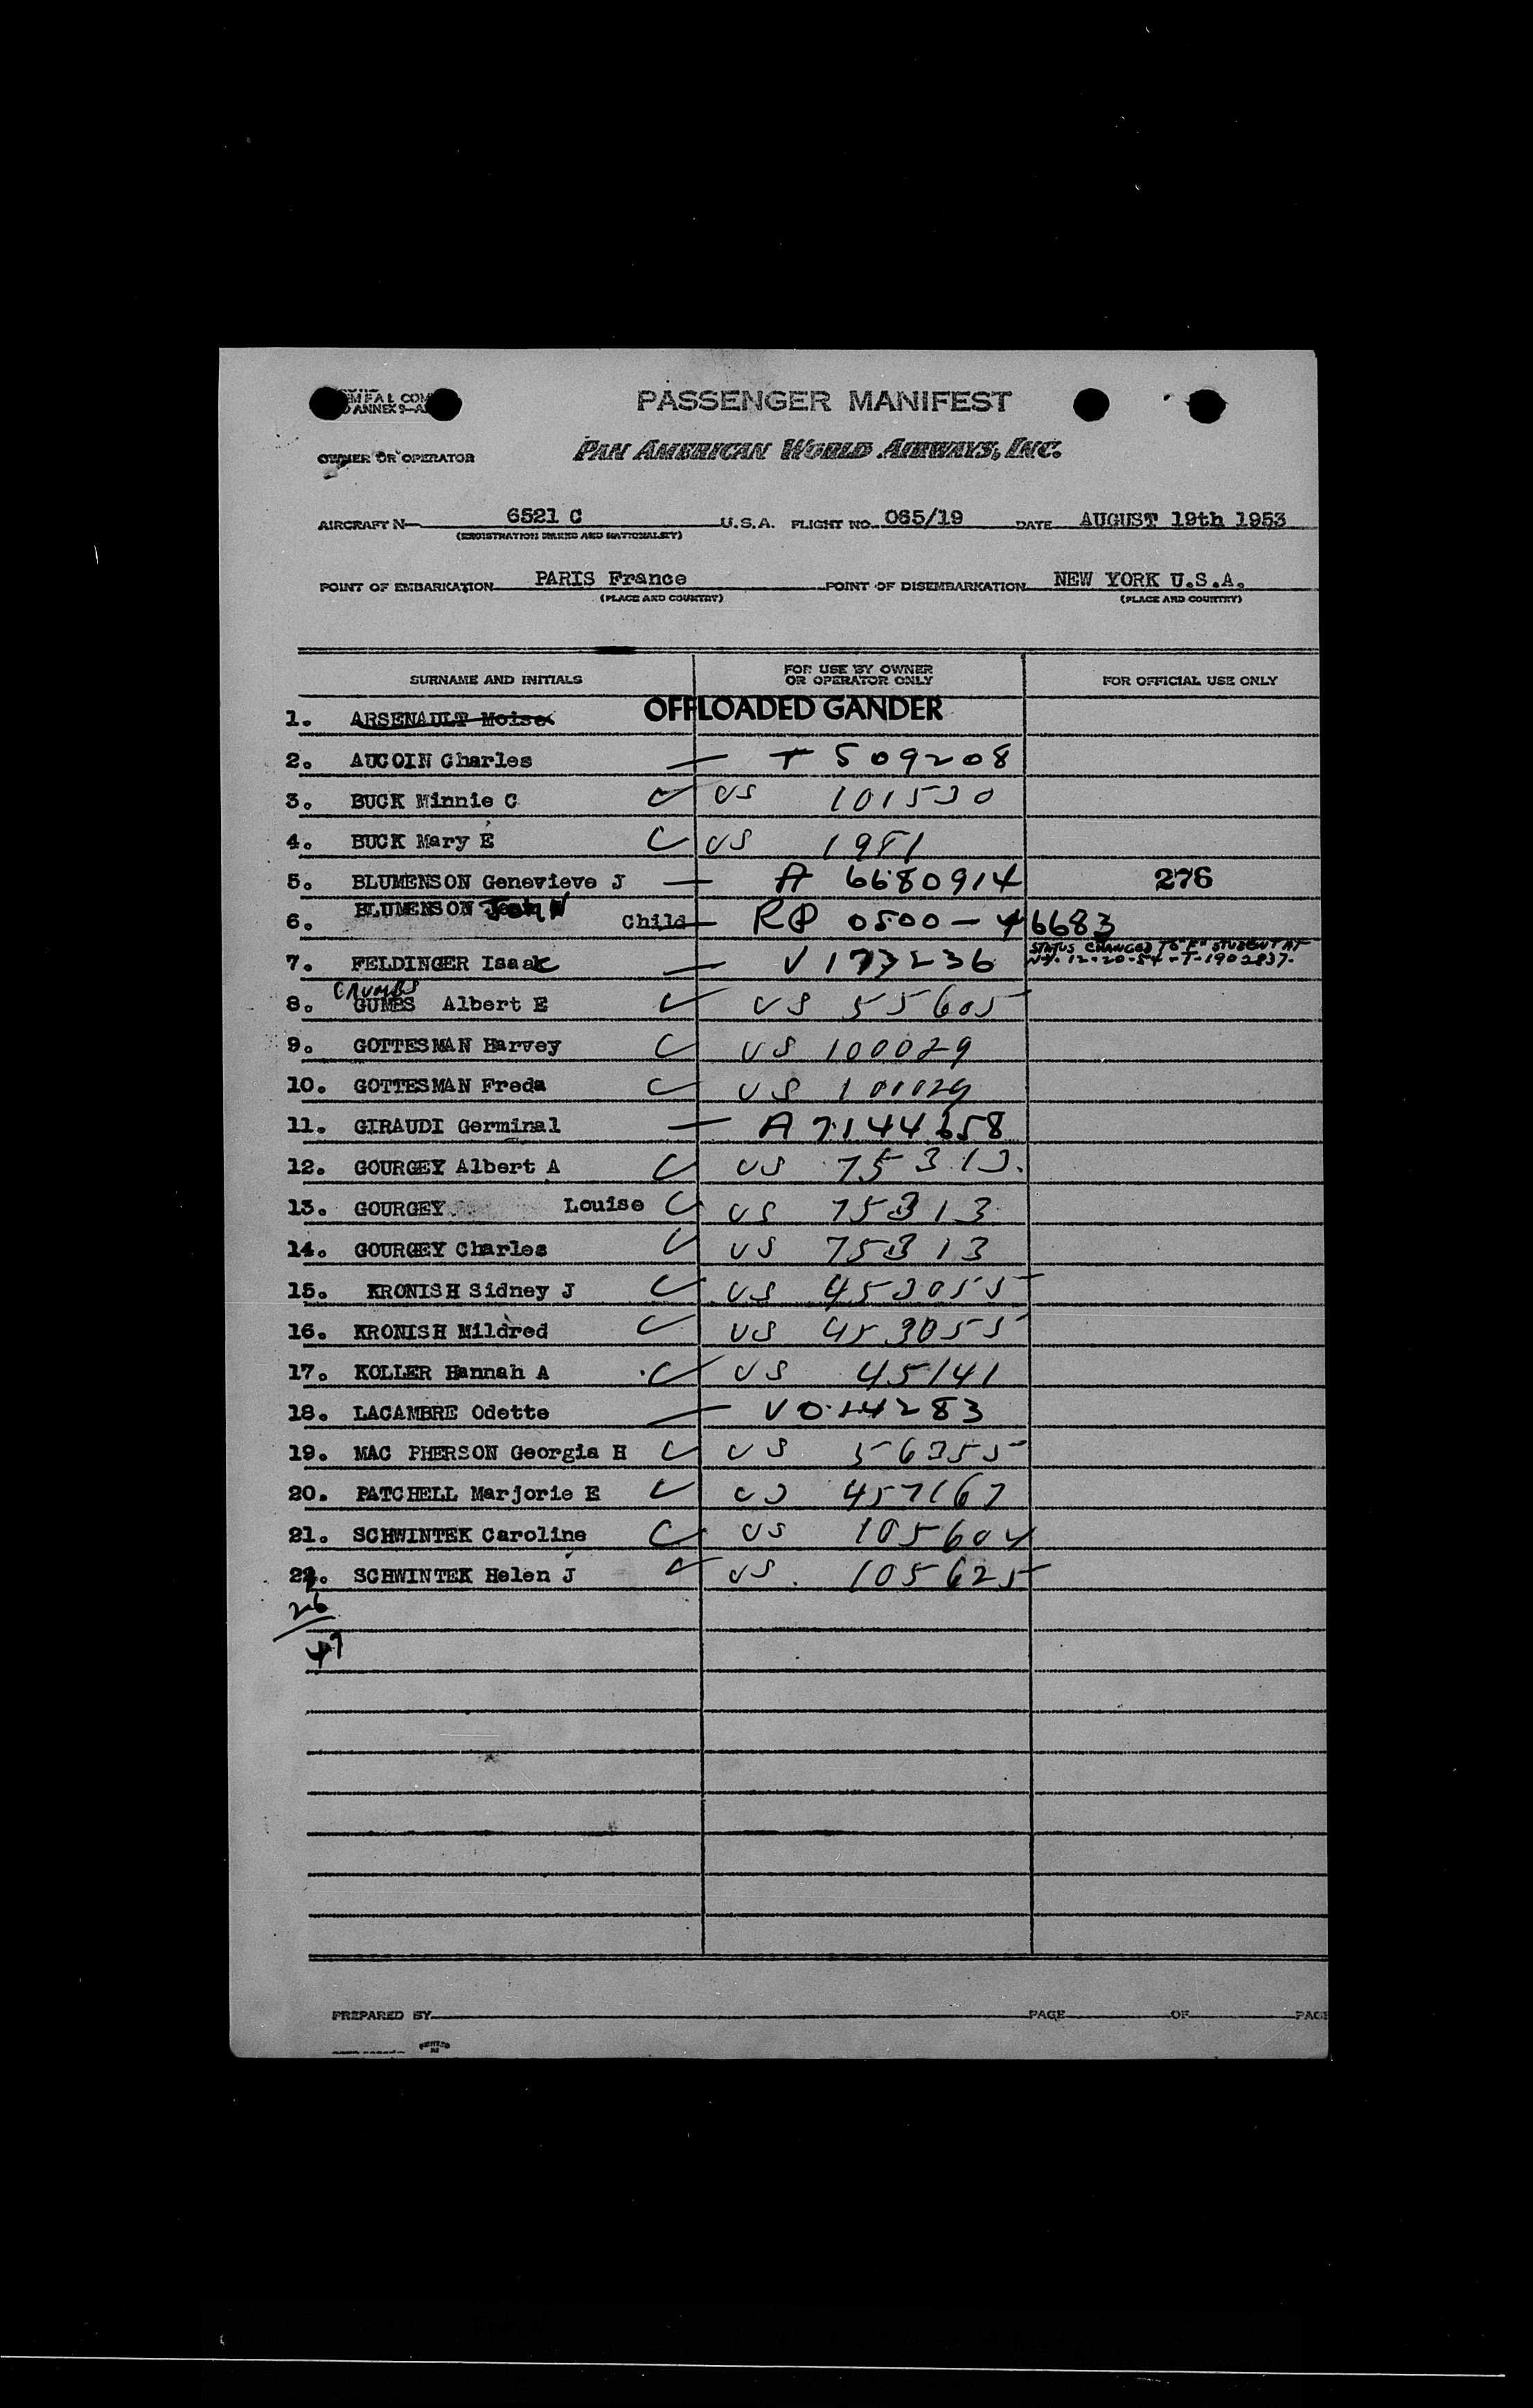 PASSENGER MANIFEST
ANNEX 9—A
OWNER OR OPERATOR
PAN AMERICAN WORLD AIRWAYS, INC.
AIRCRAFT N— 6521 C U.S.A. FLIGHT NO. 065/19 DATE AUGUST 19th 1953
(REGISTRATION MARKS AND NATIONALITY)
POINT OF EMBARKATION PARIS France POINT OF DISEMBARKATION NEW YORK U.S.A.
(PLACE AND COUNTRY) (PLACE AND COUNTRY)
SURNAME AND INITIALS FOR USE BY OWNER OR OPERATOR ONLY FOR OFFICIAL USE ONLY
1. ARSENAULT Moise OFFLOADED GANDER
2. AUCOIN Charles — T 509208
3. BUCK Minnie C US 101530
4. BUCK Mary E US 1981
5. BLUMENSON Genevieve J — A 6680914 276
6. BLUMENSON Child — RP 0500-46683
7. FELDINGER Isaac — V 173236 STATUS CHANGED TO "F" STUDENT AT N.Y. 12-20-54-T-1902837-
CRUMBS
8. GUMBS Albert E US 55605
9. GOTTESMAN Harvey US 100029
10. GOTTESMAN Freda US 101029
11. GIRAUDI Germinal — A 7144658
12. GOURGEY Albert A US 75313
13. GOURGEY Louise US 75313
14. GOURGEY Charles US 75313
15. KRONISH Sidney J US 453055
16. KRONISH Mildred US 453055
17. KOLLER Hannah A US 45141
18. LACAMBRE Odette — V 014283
19. MAC PHERSON Georgia H US 56355
20. PATCHELL Marjorie E US 457167
21. SCHWINTEK Caroline US 105604
22. SCHWINTEK Helen J US 105625
26
47
PREPARED BY PAGE OF PAGE